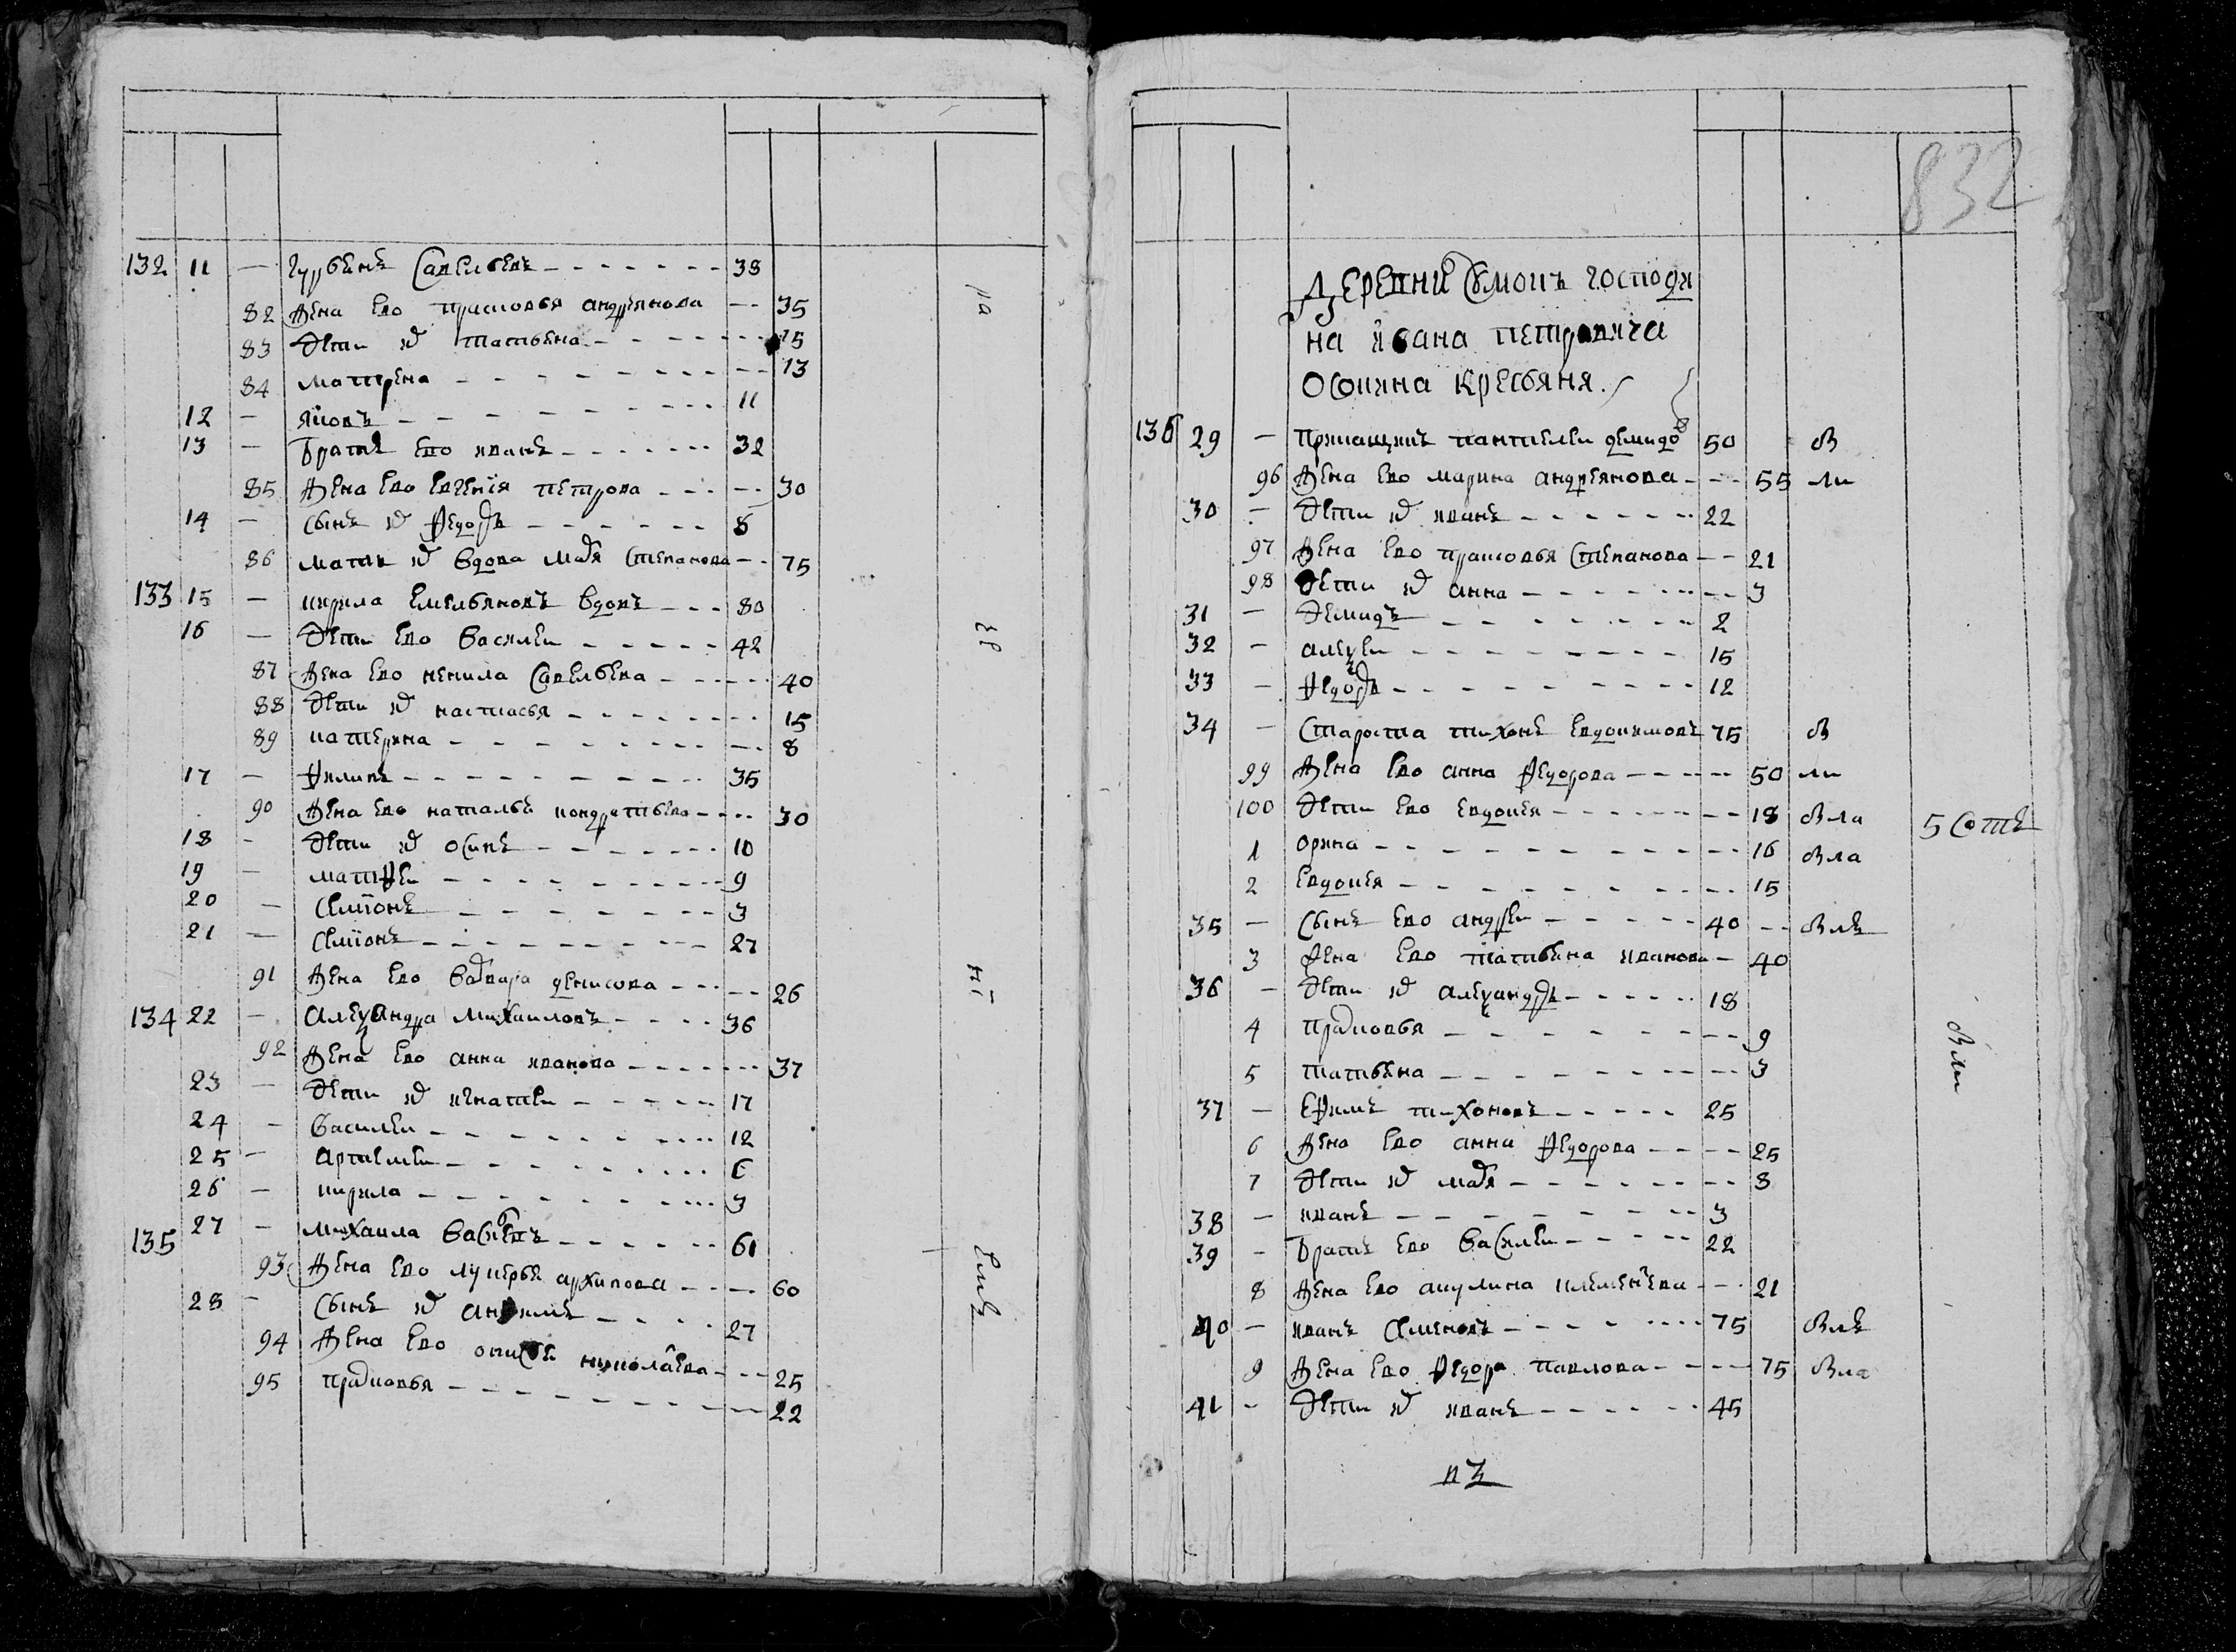 132 11 — Гурьянъ Савельевъ 38
82 Жена ево прасковья андреянова 35
83 дети их татьяна 15
84 матрена 13
12 — яковъ 11
13 — братъ ево иванъ 32
85 Жена ево евгения петрова 30
14 — сынъ их федоръ 8
86 мать их вдова марья степанова 75
133 15 — кирила емельяновъ вдовъ 80
16 — дети ево василеи 42
87 Жена ево ненила савельева 40
88 дети их настасья 15
89 катерина 8
17 — филипъ 35
90 Жена ево наталья кондратьева 30
18 — дети их осипъ 10
19 — матфеи 9
20 — семионъ 3
21 — семионъ 27
91 Жена ево варвара денисова 26
134 22 — алеѯандра михаиловъ 36
92 Жена ево анна иванова 37
23 — дети их игнатеи 17
24 — василеи 12
25 — артемеи 6
26 — кирила 3
135 27 — михаила васильевъ 61
93 Жена ево лукерья архипова 60
28 — сынъ их 27
94 Жена ево николаева 25
95 прасковья 22
832
деревни господи
на ивана петровича
осокина крестьяня
136 29 — прикащикъ пантелеи демидов 50 ои
96 Жена ево марина андреянова 55 ли
30 — дети их иванъ 22
97 Жена ево прасковья степанова 21
98 дети их анна 3
31 — демидъ 2
32 — алеѯеи 15
33 — федоръ 12
34 — староста тихонъ евдокимовъ 75
99 Жена ево анна федорова 50 ли
100 дети ево евдокея 18
1 орина 16
2 евдокея 15
35 — сынъ ево андреи 40
3 Жена ево татьяна иванова 40
36 — дети их алеѯандръ 18
4 прасковья 9
5 татьяна 3
37 — ефимъ тихоновъ 25
6 Жена ево анна федорова 25
7 дети их марья 8
38 — иванъ 3
39 — братъ ево василеи 22
8 Жена ево акулина клементьева 21
40 — иванъ семеновъ 75
9 Жена ево федора павлова 75
41 — дети их иванъ 45